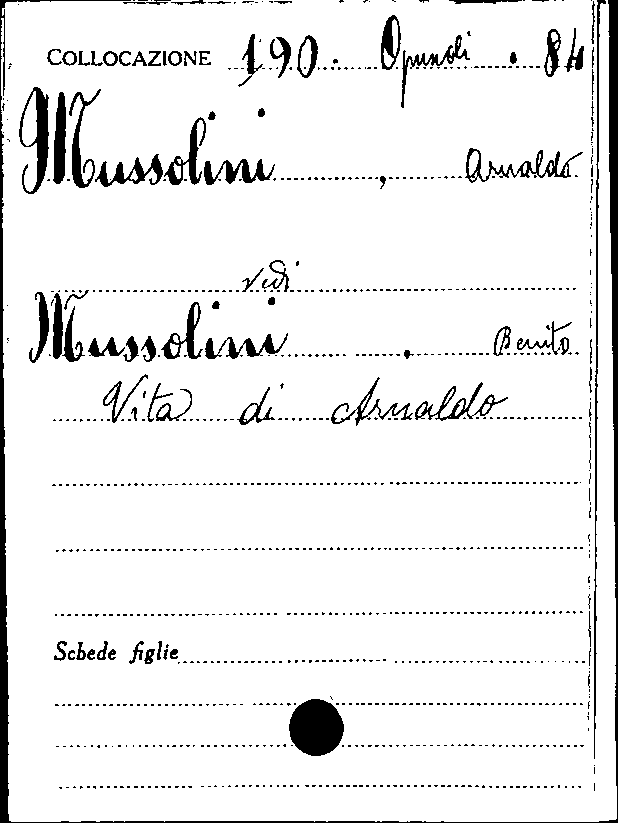 COLLOCAZIONE 190. Opuscoli . 84
Mussolini, Arnaldo
vedi
Mussolini, Benito
Vita di Arnaldo
Schede figlie